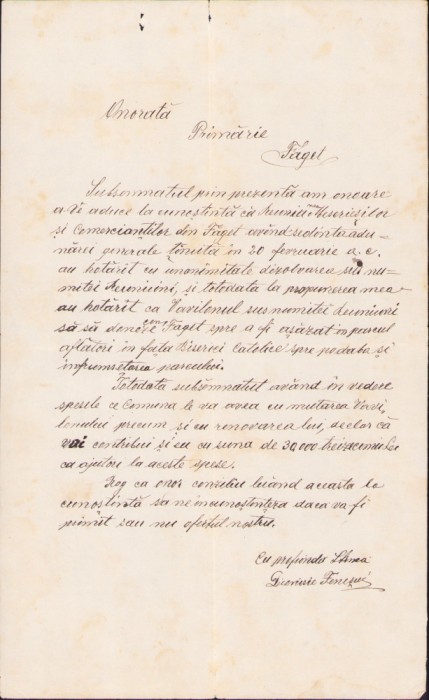 Onorată
Primărie
Făget
Subsemnatul prin prezentă am onoare
a Vi aduce la cunoștință că Reuniunea Meseriașilor
și Comercianților din Făget având ședința adu=
nărei generale ținuta în 20 fevruarie a.c.
au hotărit cu unonimitate dizolvarea susnu=
mitei Reuniuni, și totodata la propunerea mea
au hotărit ca Pavilonul susnumitei Reuniuni
să să doneze com. Făget spre a fi așăzat în parcul
aflători în fața Bisericii Catolice spre podoba și
înfrumsețarea parcului.
Totodată subsemnatul având în vedere
spesele ce Comuna le va avea cu mutarea Pavi
lonului precum și cu renovarea lui, declar că
voi contribui și eu cu suma de 30,000 treizecimii Lei
ca ajutor la aceste spese.
Rog ca onor consiliu luând aceasta la
cunoștință sa ne incunoștințeze daca va fi
primit sau nu ofertul nostru.
Cu profundă Stima